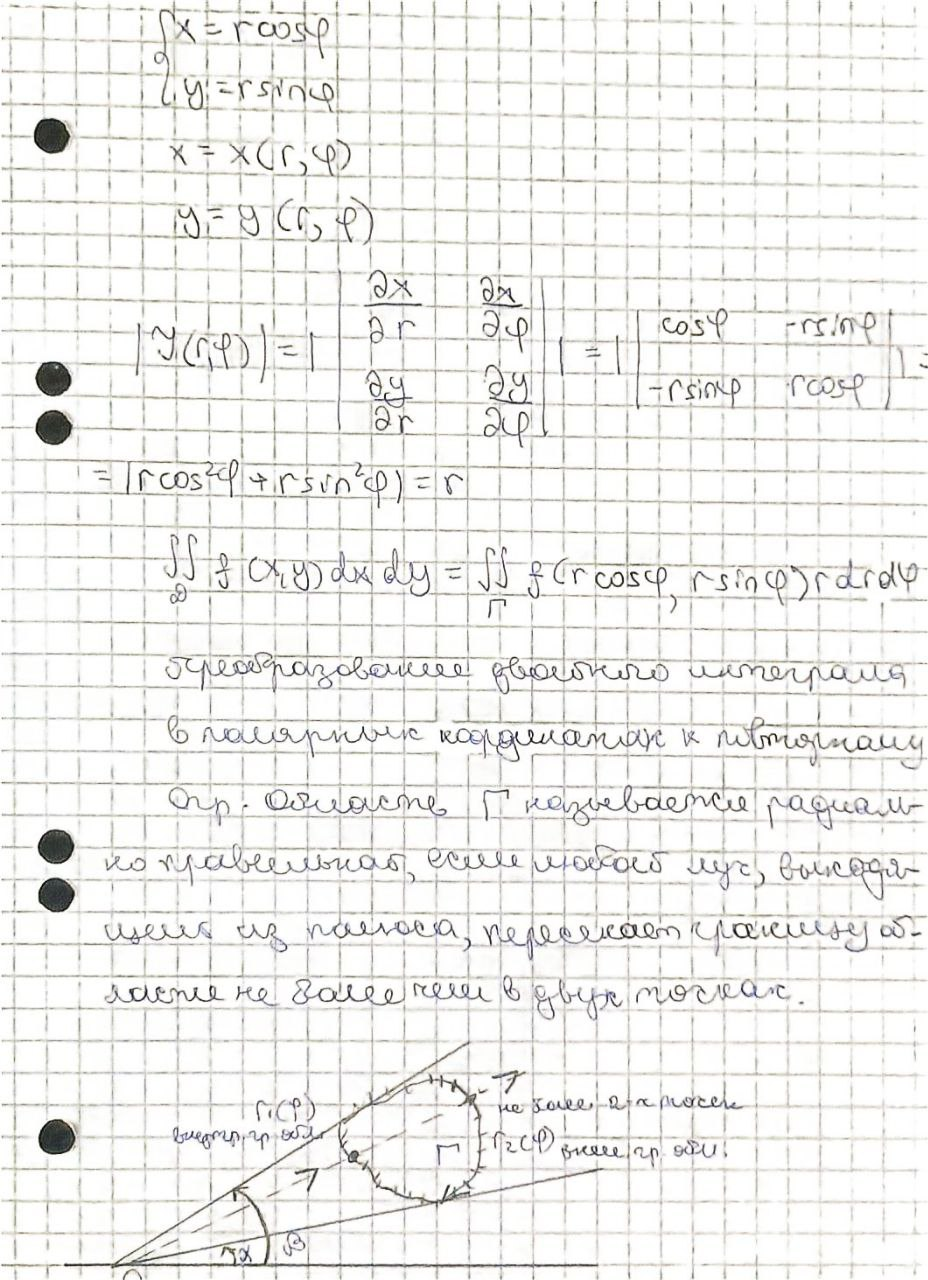 {x = r cosφ
{y = r sinφ
x = x(r, φ)
y = y(r, φ)
|J(r,φ)| = | |∂x/∂r ∂x/∂φ; ∂y/∂r ∂y/∂φ| | = | |cosφ -r sinφ; -r sinφ r cosφ| | =
= |r cos²φ + r sin²φ| = r
∬_D f(x,y) dx dy = ∬_Γ f(r cosφ, r sinφ) r dr dφ
Преобразование двойного интеграла
в полярных координатах к повторному
Опр. Область Γ называется радиаль-
но правильной, если любой луч, выходя-
щий из полюса, пересекает границу об-
ласти не более чем в двух точках.
r₁(φ)
внутр. гр. обл.
не более 2-х точек
Γ
r₂(φ) внеш. гр. обл.
α
β
O